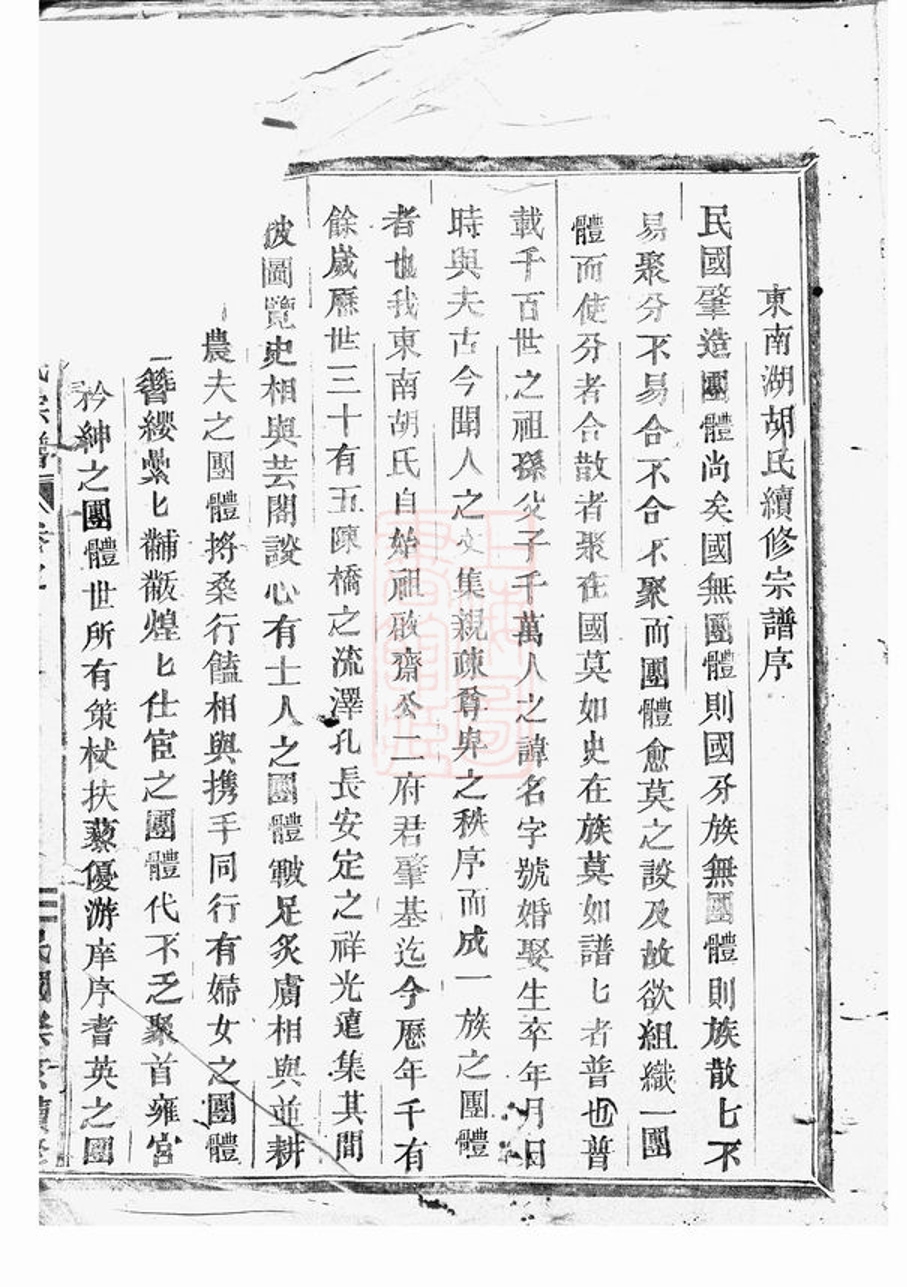 東南湖胡氏續修宗譜序
民國肇造團體尚矣國無團體則國分族無團體則族散匕不
易聚分不易合不合不聚而團體愈莫之談及故欲組織一團
體而使分者合散者聚在國莫如史在族莫如譜匕者普也普
載千百世之祖孫父子千萬人之諱名字號婚娶生卒年月日
時與夫古今聞人之文集親疎尊卑之秩序而成一族之團體
者也我東南胡氏自始祖敬齋公二府君肇基迄今歷年千有
餘歲歷世三十有五陳橋之流澤孔長安定之祥光遠集其間
披圖覽史相與芸閣談心有士人之團體皸足炙膚相與並耕
農夫之團體捋桑行饁相與携手同行有婦女之團體
簪纓纍匕黼黻煌匕仕宦之團體代不乏聚首雍宮
矜紳之團體世所有策杖扶藜優游庠序耆英之團
氏宗譜 卷之 民國癸亥續修